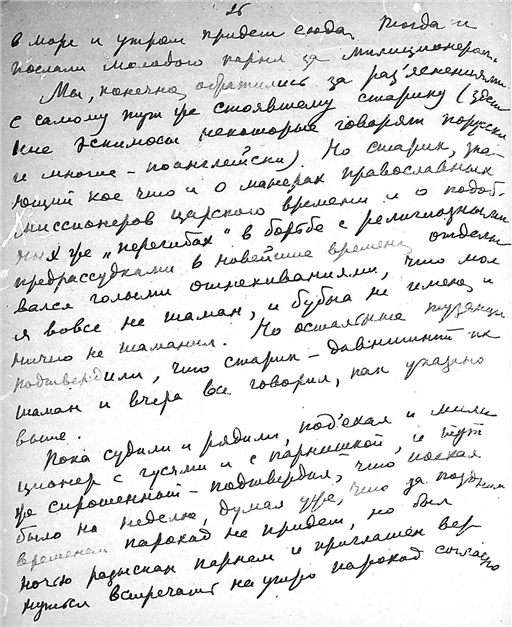 25
в море и утром придет сюда. Тогда и
послали молодого парня за милиционером.
Мы, конечно, обратились за раз'яснениями
с самому тут же стоявшему старику (здеш
ние эскимосы некоторые говорят порусски
и многие - поанглейски). Но старик, зна-
ющий кое что и о манерах православных
миссионеров царского времени и о подоб-
ных же "перегибах" в борьбе с религиозными
предрассудками в новейшие времена, отделы
вался голыми отнекиваниями, что мол
я вовсе не шаман, и бубна не имею, и
ничего не шаманил. Но остальные туземцы
подтвердили, что старик - давнишний их
шаман и вчера все говорил, как указано
выше.
Пока судили и рядили, под'ехал и мили
ционер с гусями и с парнишкой, и тут
же спрошенный - подтвердил, что поехал
было на неделю, думая уже, что за поздним
временем пароход не придет, но был
ночью разыскан парнем и приглашен вер-
нуться встречать на утро пароход согласно